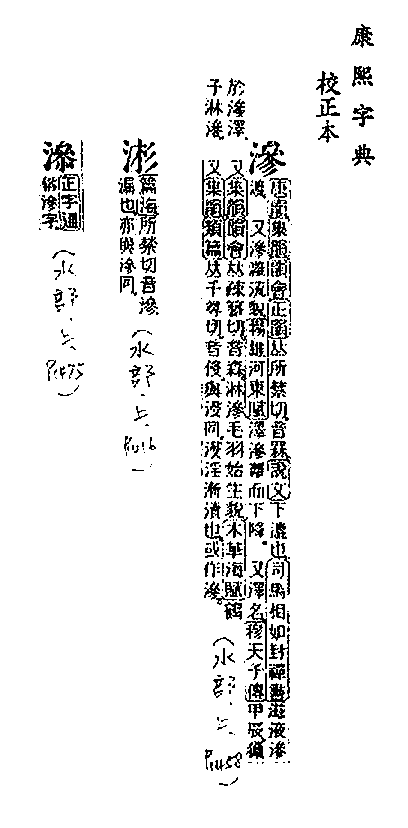 康熙字典
校正本
滲
唐韻集韻韻會正韻𠀤所禁切音罧說文下漉也司馬相如封禪書滋液滲
漉 又滲灕流貌揚雄河東賦澤滲灕而下降 又澤名穆天子傳甲辰獵
於滲澤 又集韻韻會𠀤疏簪切音森淋滲毛羽始生貌木華海賦鶴
子淋滲 又集韻類篇𠀤千尋切音侵與浸同浸淫漸漬也或作滲
(水部·上 P1458)
篇海所禁切音滲
漏也亦與滲同
(水部·上 P1416)
正字通
俗滲字
(水部·上 P1475)